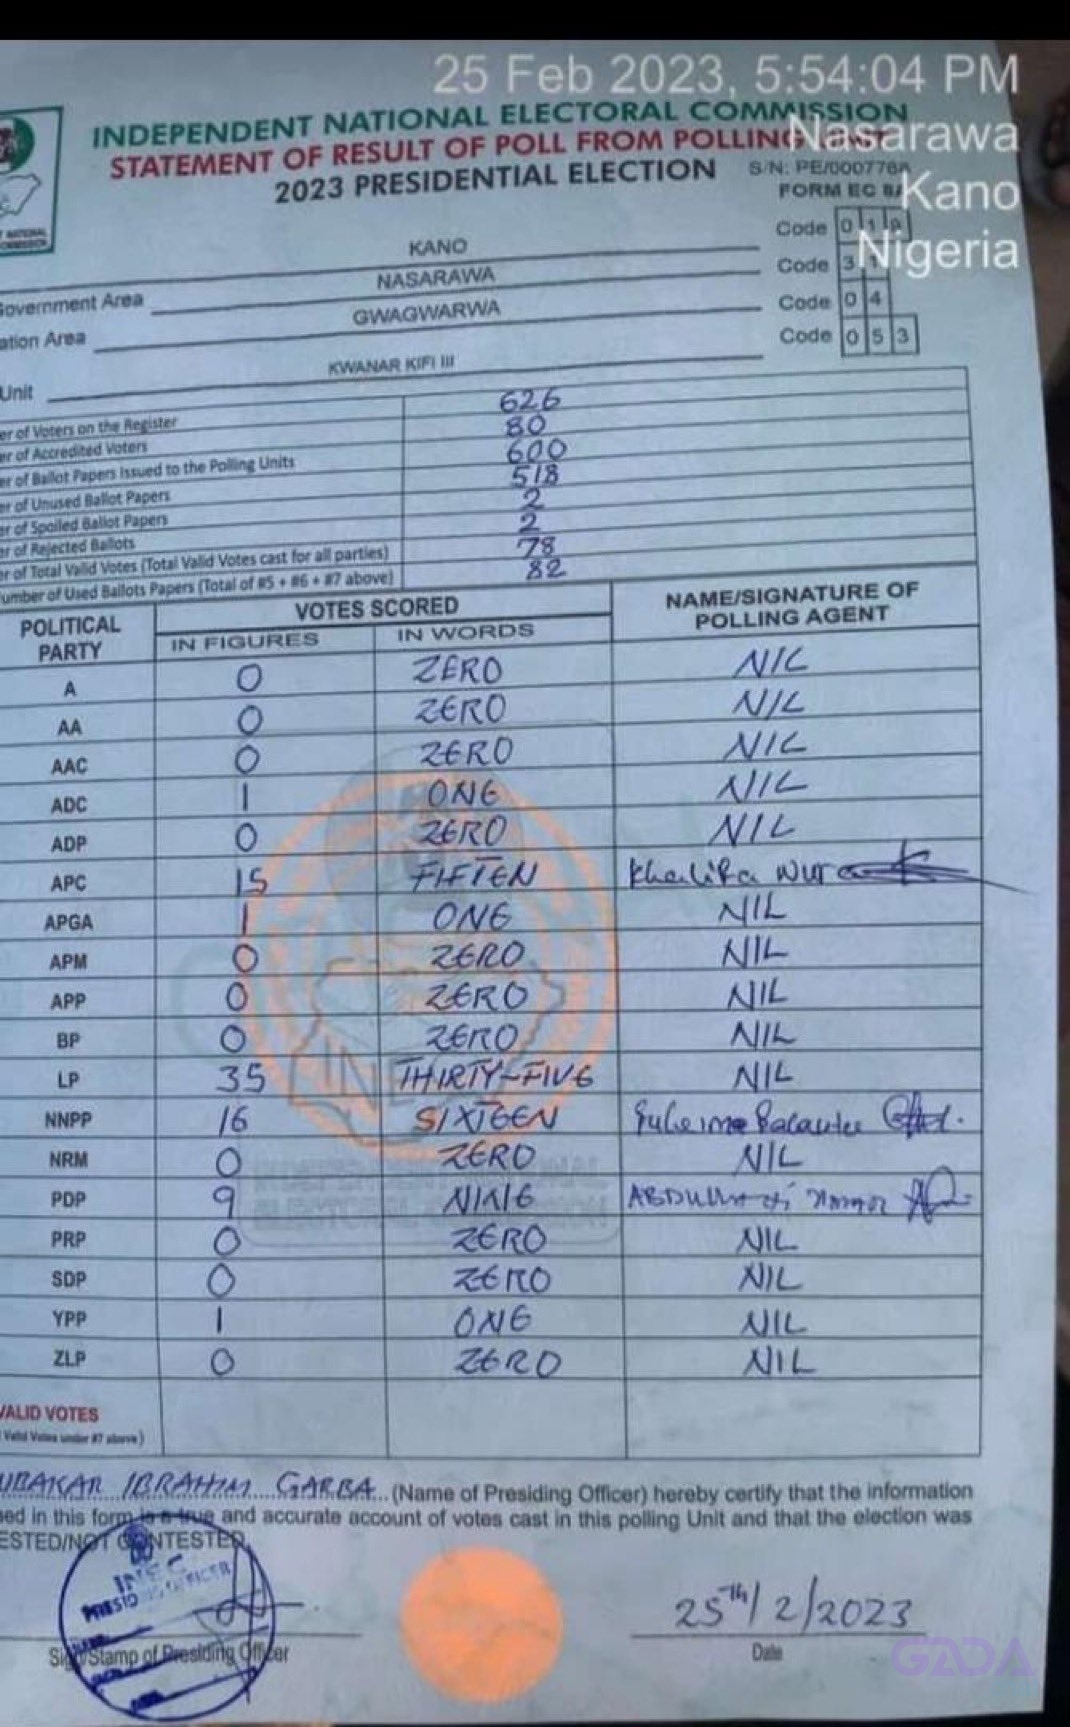 25 Feb 2023, 5:54:04 PM
Nasarawa
Kano
Nigeria
INDEPENDENT NATIONAL ELECTORAL COMMISSION
STATEMENT OF RESULT OF POLL FROM POLLING
2023 PRESIDENTIAL ELECTION
S/N: PE/000776
FORM EC 8A
KANO Code 019
Government Area NASARAWA Code 31
ation Area GWAGWARWA Code 04
Unit KWANAR KIFI III Code 053
er of Voters on the Register 626
er of Accredited Voters 80
er of Ballot Papers Issued to the Polling Units 600
er of Unused Ballot Papers 518
er of Spoiled Ballot Papers 2
er of Rejected Ballots 2
er of Total Valid Votes (Total Valid Votes cast for all parties) 78
umber of Used Ballots Papers (Total of #5 + #6 + #7 above) 82
POLITICAL PARTY VOTES SCORED NAME/SIGNATURE OF POLLING AGENT
IN FIGURES IN WORDS
A 0 ZERO NIL
AA 0 ZERO NIL
AAC 0 ZERO NIL
ADC 1 ONE NIL
ADP 0 ZERO NIL
APC 15 FIFTEN Khalifa Nura
APGA 1 ONE NIL
APM 0 ZERO NIL
APP 0 ZERO NIL
BP 0 ZERO NIL
LP 35 THIRTY-FIVE NIL
NNPP 16 SIXTEEN
NRM 0 ZERO NIL
PDP 9 NINE
PRP 0 ZERO NIL
SDP 0 ZERO NIL
YPP 1 ONE NIL
ZLP 0 ZERO NIL
VALID VOTES
Valid Votes under #7 above)
UBAKAR IBRAHIM GARBA (Name of Presiding Officer) hereby certify that the information
ed in this form is a true and accurate account of votes cast in this polling Unit and that the election was
ESTED/NOT CONTESTED
INEC
PRESIDING OFFICER
25TH/2/2023
Sign/Stamp of Presiding Officer Date
GADA